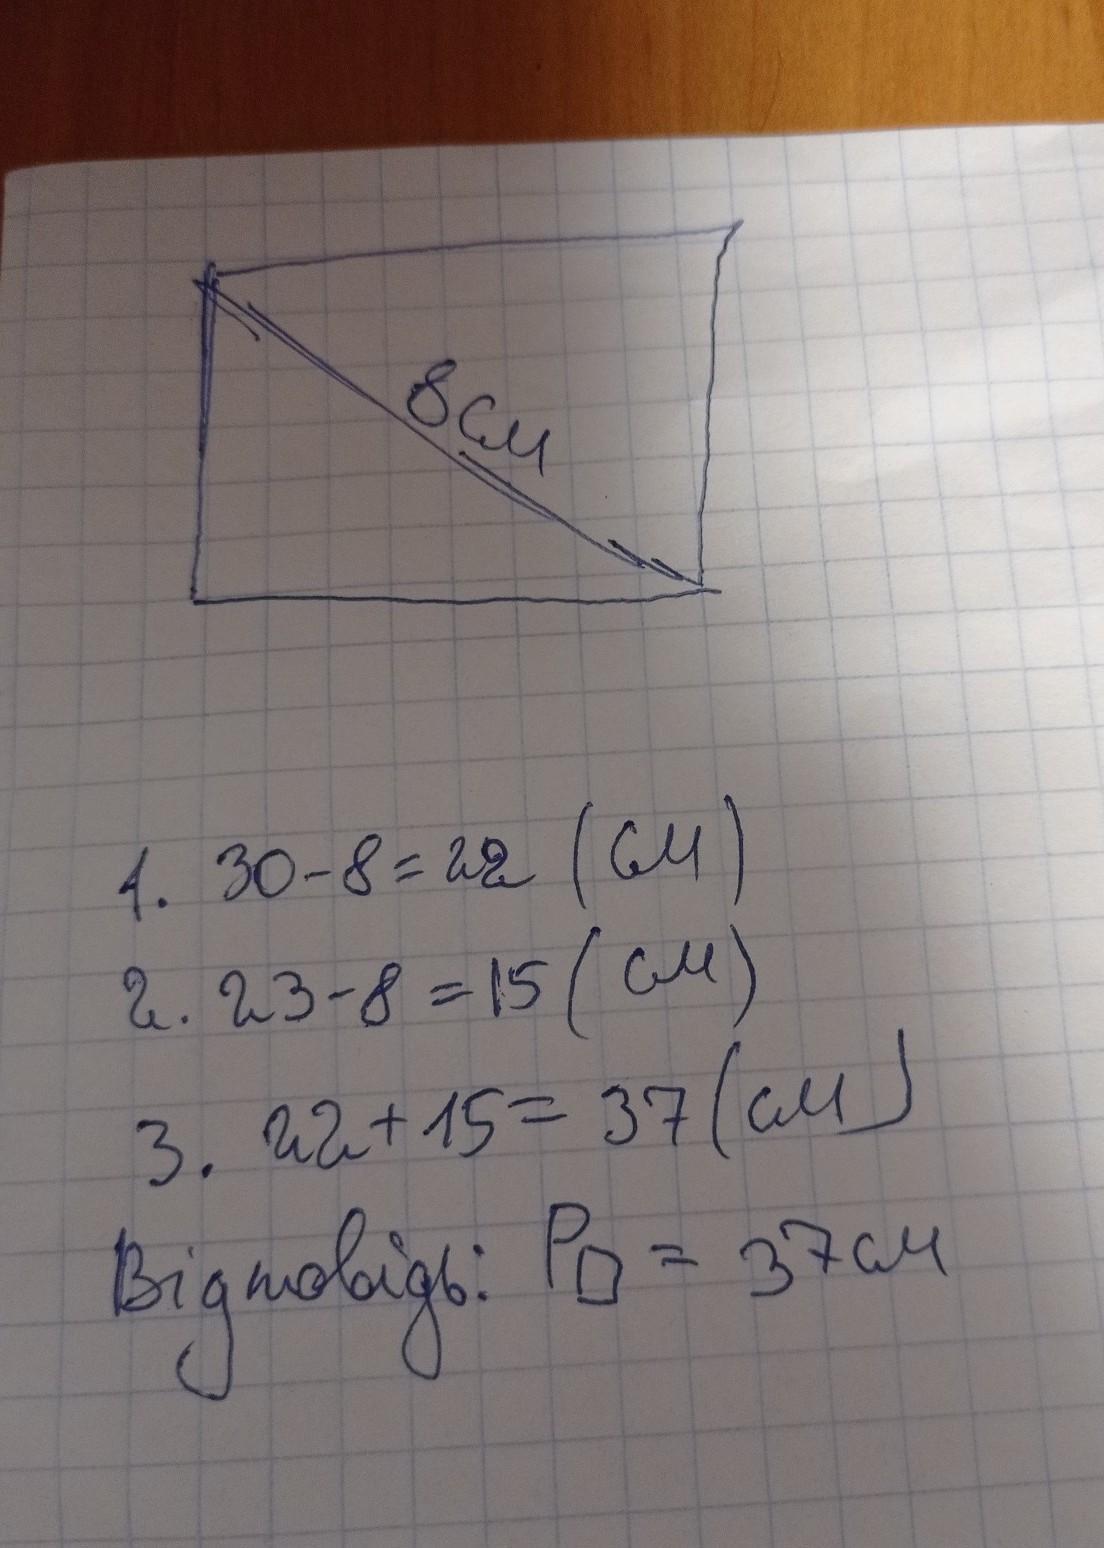 8см
1. 30-8=22 (см)
2. 23-8=15 (см)
3. 22+15=37 (см)
Відповідь: P□ = 37см